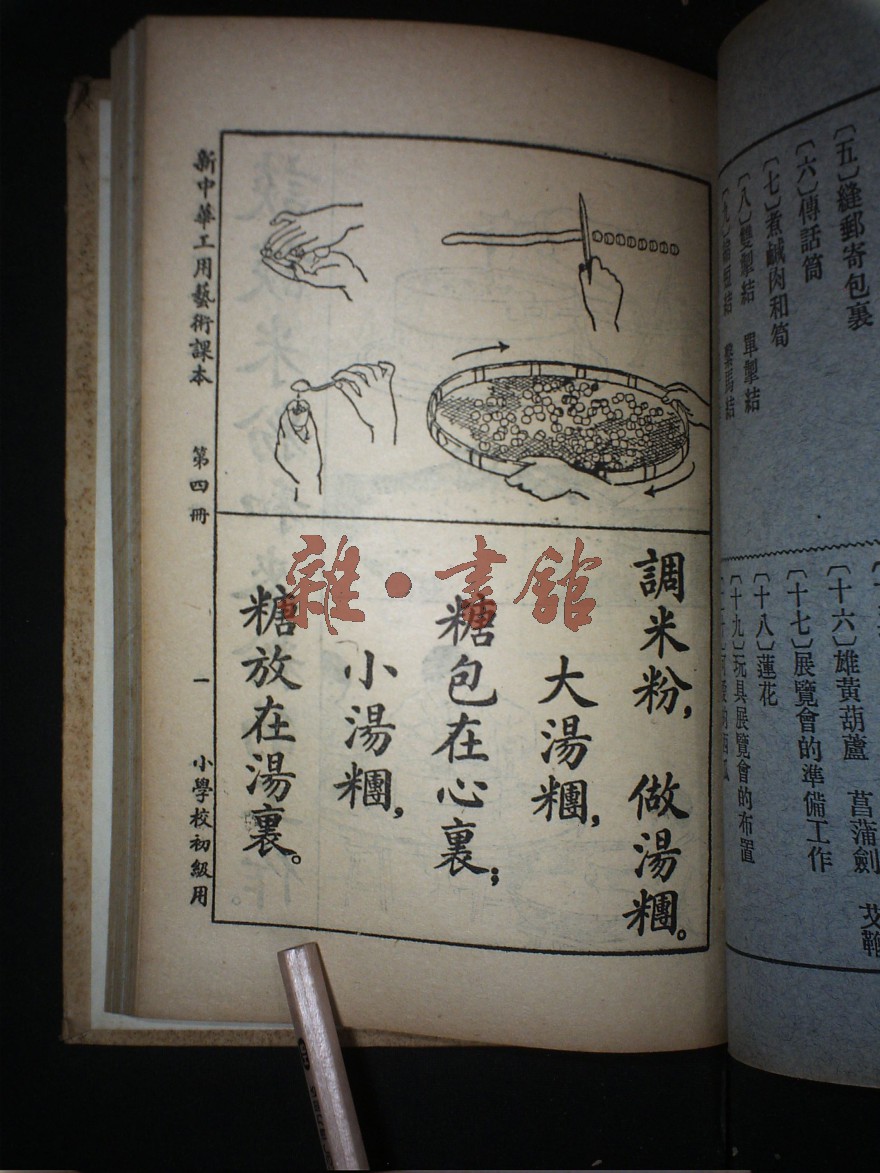 〔五〕縫郵寄包裹
〔六〕傳話筒
〔七〕煮鹹肉和筍
〔八〕雙製結 單製結
〔十六〕雄黃葫蘆 菖蒲劍
〔十七〕展覽會的準備工作
〔十八〕蓮花
〔十九〕玩具展覽會的布置
調米粉, 做湯糰。
大湯糰,
糖包在心裏;
小湯糰,
糖放在湯裏。
新中華工用藝術課本 第四冊 一 小學校初級用
雜·書館